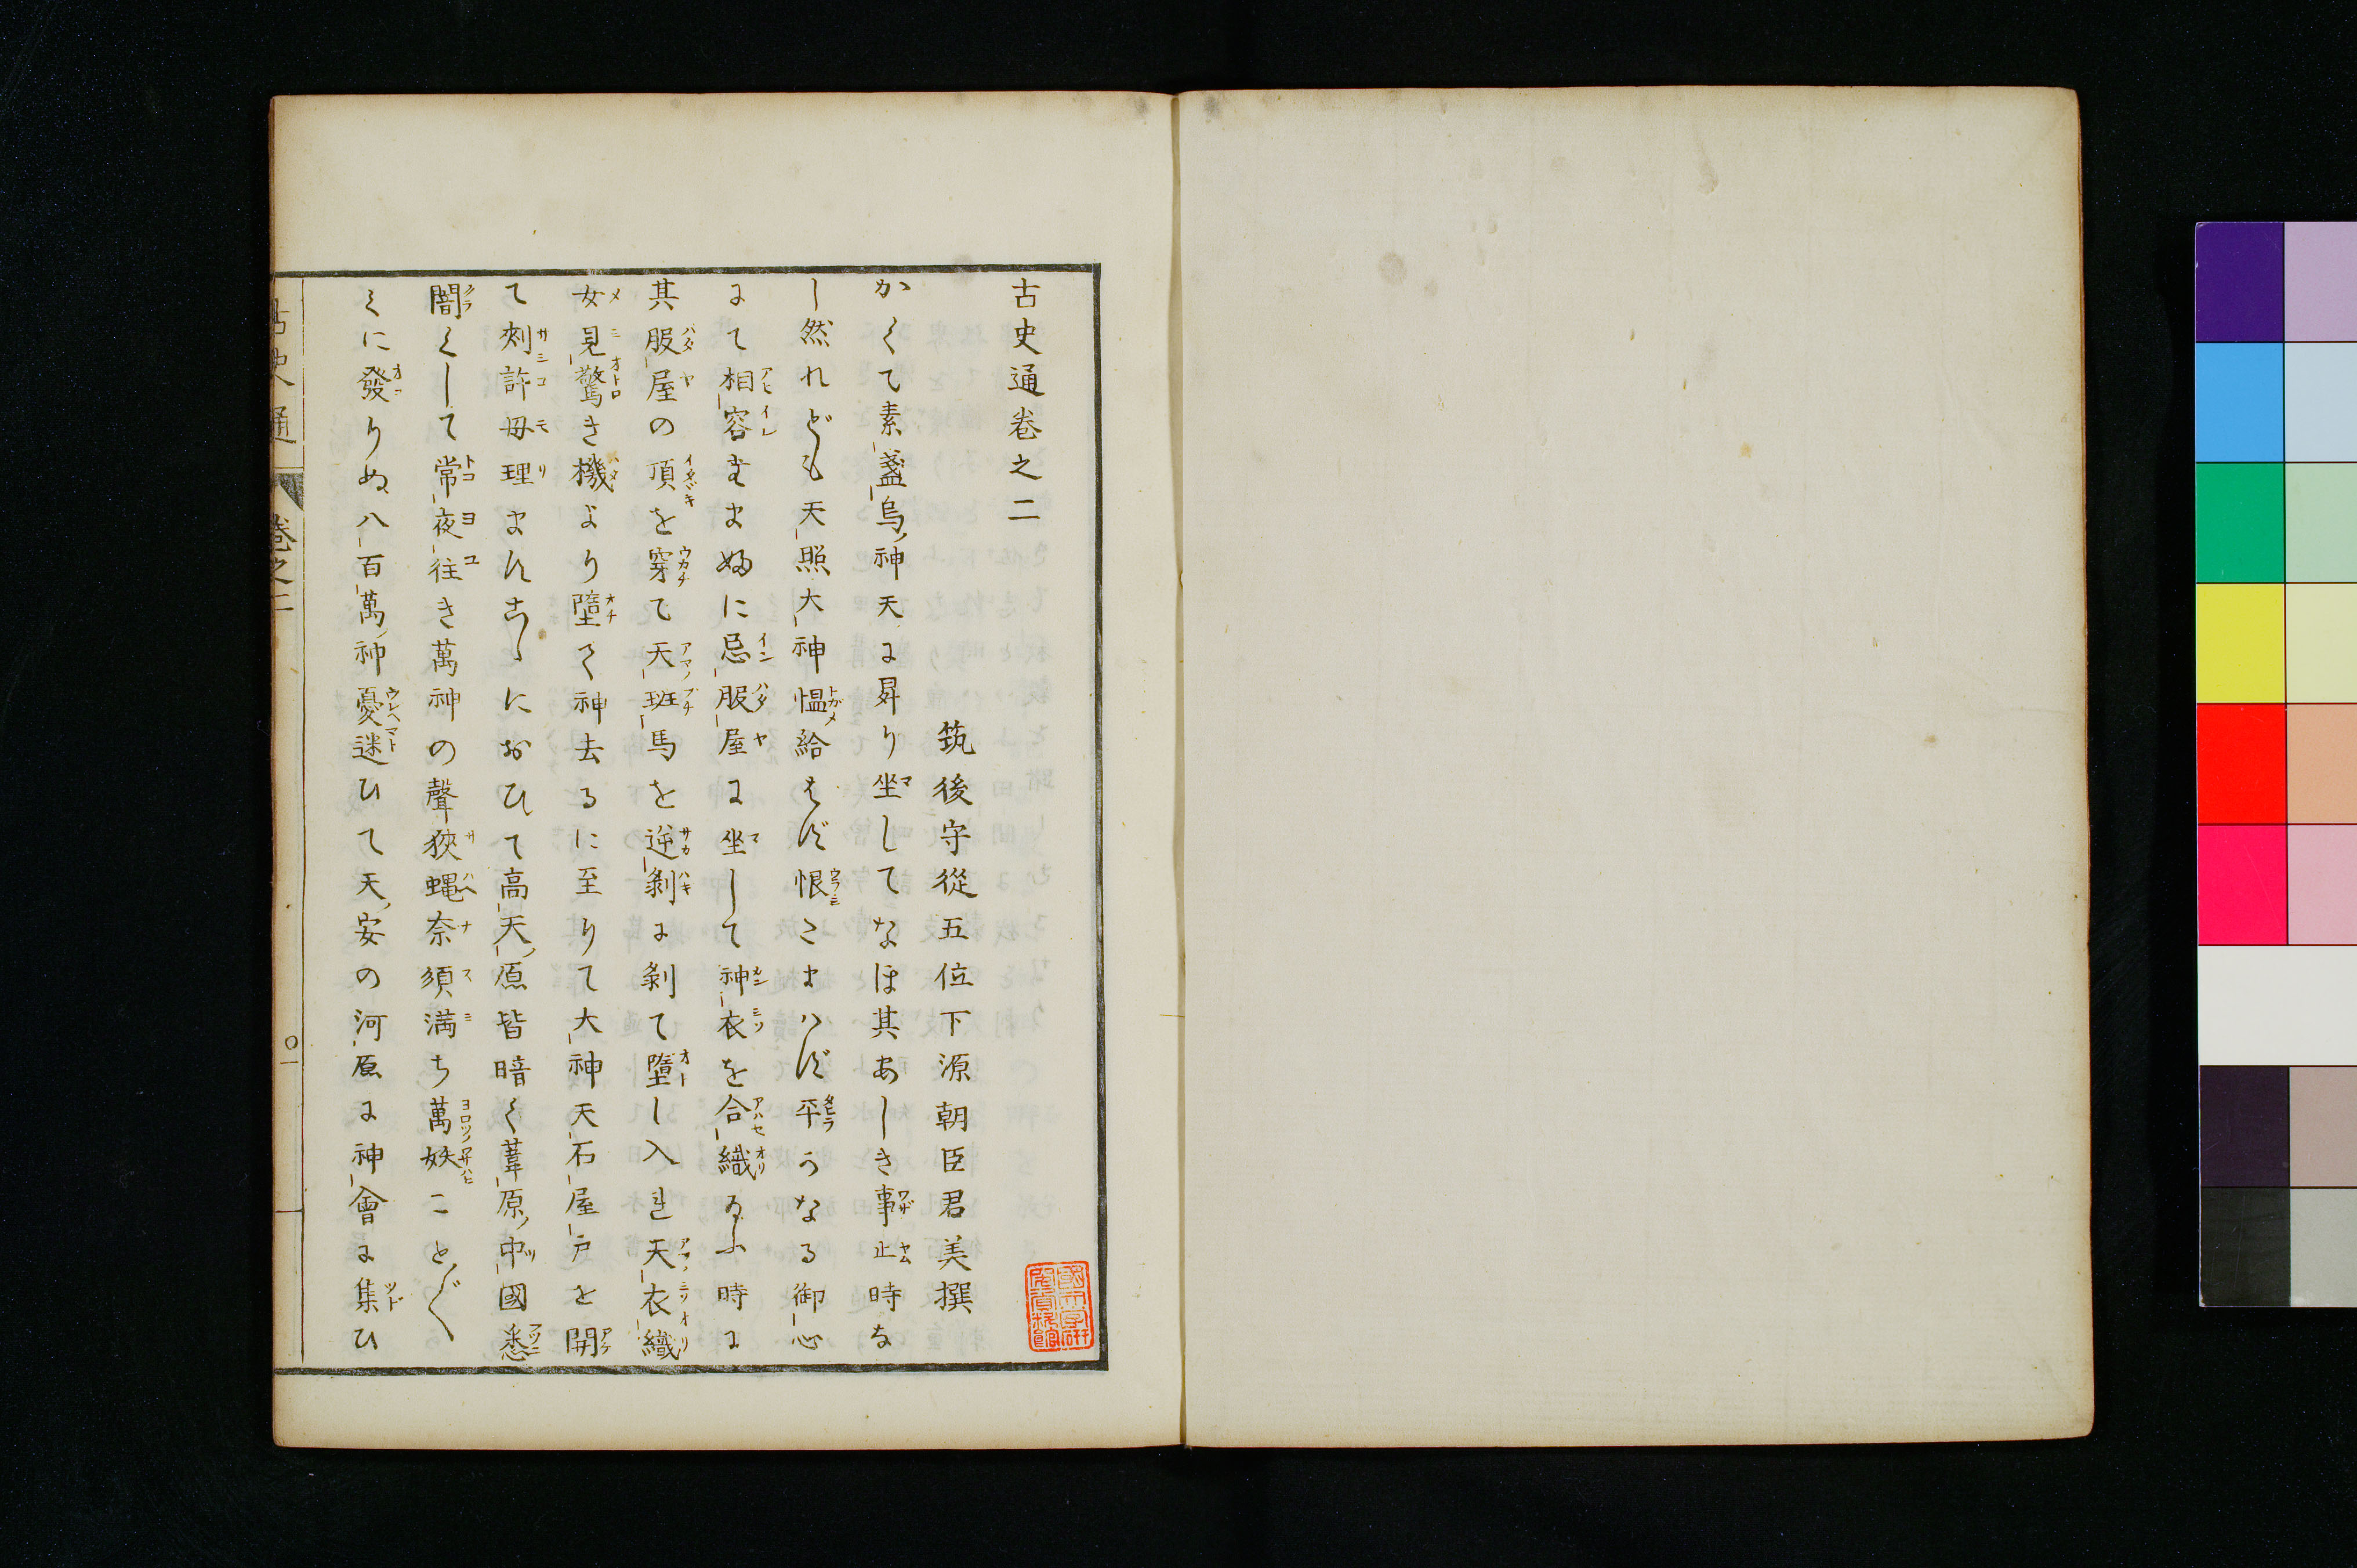 古史通卷之二
筑後守從五位下源朝臣君美撰
かくて素盞烏神天に昇り坐してなほ其あしき事止時な
し然れども天照大神慍給はず恨たまハず平らなる御心
にて相容たまふに忌服屋に坐して神衣を合織るふ時に
其服屋の頂を穿て天斑馬を逆剝に剝て墮し入れ天衣織
女見驚き機より墮て神去るに至りて大神天石屋戸を開
て刾許母理ましこゝにおひて高天原皆暗く葦原中國悉
闇くして常夜往き萬神の聲狹蠅奈須満ち萬妖ことく
くに發りぬ八百萬神憂迷ひて天安の河原に神會に集ひ
古史通
卷之二
〇一